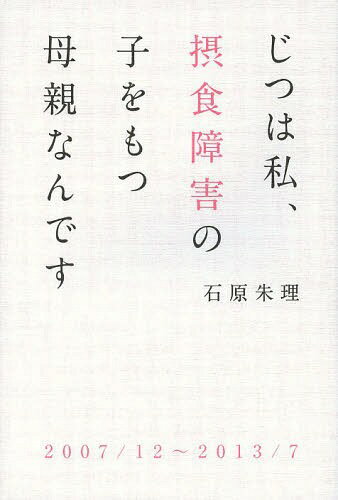 じつは私、
摂食障害の
子をもつ
母親なんです
石原朱理
2007/12～2013/7